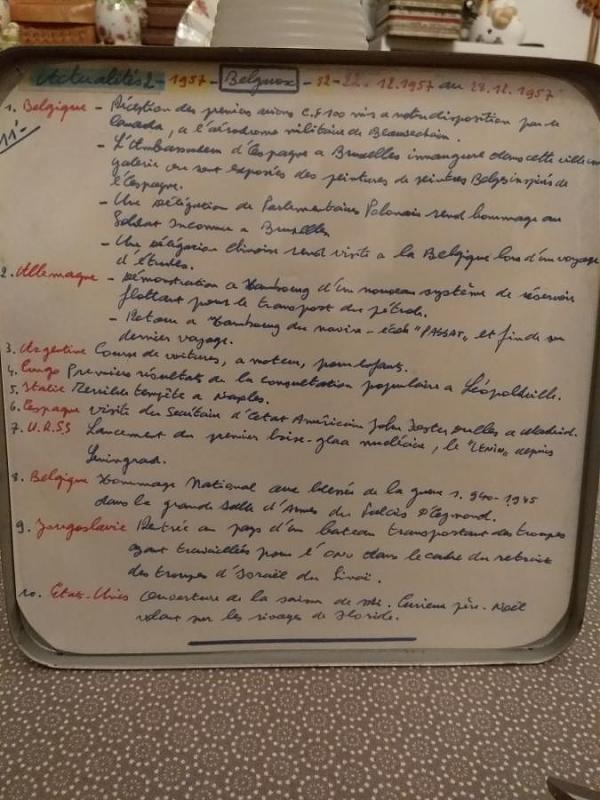 Actualités - 1957 - Belgavox - 52 - 22.12.1957 au 28.12.1957
11'-
1. Belgique - Réception des premiers avions C.F.100 mis a notre disposition par le
Canada, a l'aérodrome militaire de Beauvechain.
- L'Ambassadeur d'Espagne a Bruxelles inaugure dans cette ville une
galerie ou sont exposées des peintures de peintres Belges inspirés de
l'Espagne.
- Une délégation de Parlementaires Polonais rend hommage au
Soldat Inconnu a Bruxelles
- Une délégation Chinoise rend visite a la Belgique lors d'un voyage
d'études.
2. Allemagne - Démonstration a Hambourg d'un nouveau système de réservoir
flottant pour le transport du pétrole.
- Retour a Hambourg du navire-école "PASSAT" et fin de son
dernier voyage.
3. Argentine Course de voitures, a moteur, pour enfants.
4. Congo Premiers résultats de la consultation populaire a Léopoldville.
5. Italie Terrible tempête a Naples.
6. Espagne visite du Secrétaire d'Etat Américain John Foster Dulles a Madrid.
7. U.R.S.S Lancement du premier brise-glace nucléaire, le "LENIN" depuis
Leningrad.
8. Belgique Hommage National aux blessés de la guerre 1.940-1945
dans la grande Salle d'Armes du Palais d'Egmond.
9. Yougoslavie Rentrée au pays d'un bateau transportant des troupes
ayant travaillées pour l'ONU dans le cadre du retrait
des troupes d'Israël du Sinaï.
10. Etats-Unis Ouverture de la saison de ski. Curieux père-Noël
volant sur les rivages de Floride.